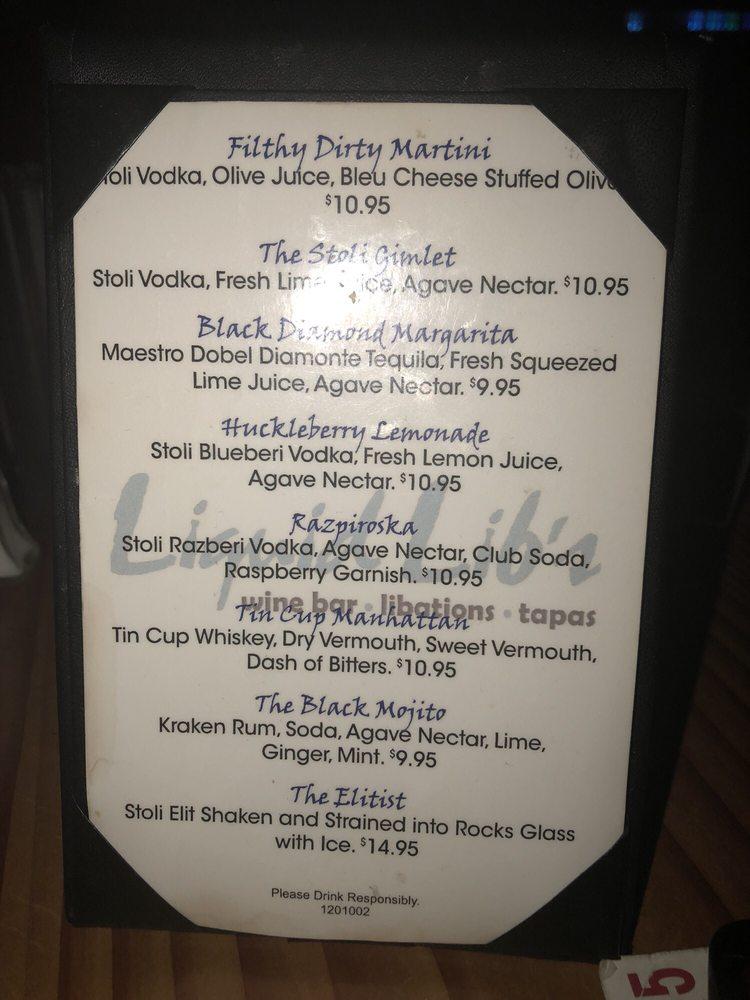 Filthy Dirty Martini
toli Vodka, Olive Juice, Bleu Cheese Stuffed Olive
$10.95
The Stoli Gimlet
Stoli Vodka, Fresh Lime Juice, Agave Nectar. $10.95
Black Diamond Margarita
Maestro Dobel Diamonte Tequila, Fresh Squeezed
Lime Juice, Agave Nectar. $9.95
Huckleberry Lemonade
Stoli Blueberi Vodka, Fresh Lemon Juice,
Agave Nectar. $10.95
Liquid Lib'n
Razpiroska
Stoli Razberi Vodka, Agave Nectar, Club Soda,
Raspberry Garnish. $10.95
wine bar · libations · tapas
Tin Cup Manhattan
Tin Cup Whiskey, Dry Vermouth, Sweet Vermouth,
Dash of Bitters. $10.95
The Black Mojito
Kraken Rum, Soda, Agave Nectar, Lime,
Ginger, Mint. $9.95
The Elitist
Stoli Elit Shaken and Strained into Rocks Glass
with Ice. $14.95
Please Drink Responsibly.
1201002
5